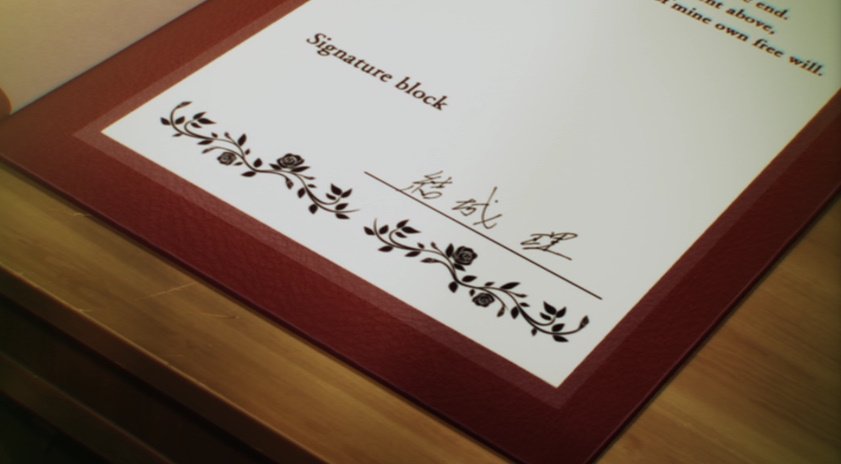 end.
above,
mine own free will.
Signature block
結城 理